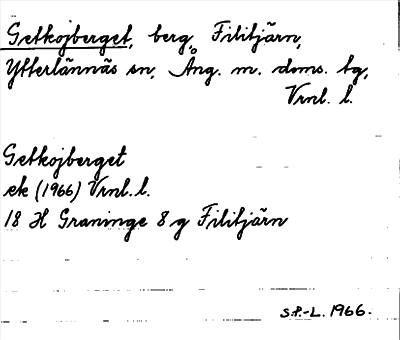 Getkojberget, berg, Filitjärn,
Ytterlännäs sn, Ång. m. doms. tg,
Vrnl. l.
Getkojberget
ek (1966) Vrnl. l.
18 H Graninge 8 g Filitjärn
S.P.-L. 1966.